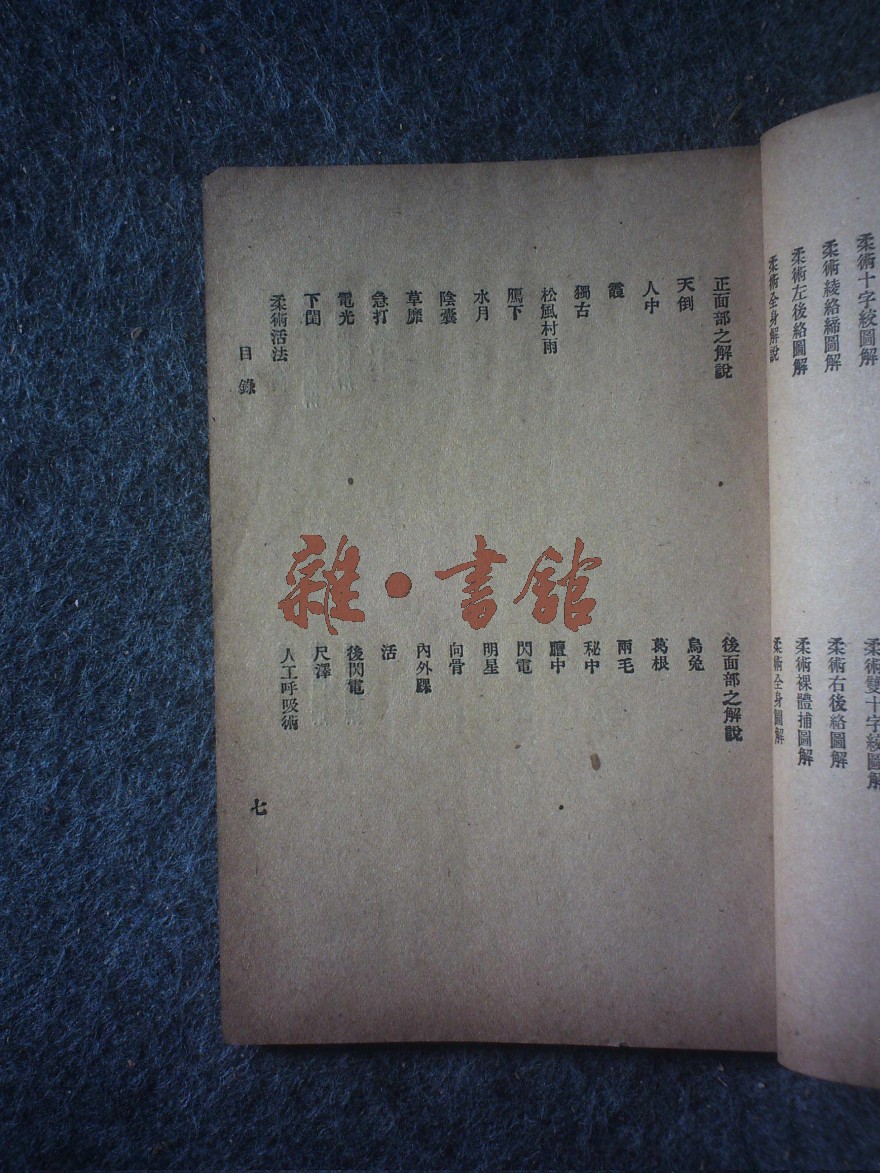 柔術十字絞圖解
柔術雙十字絞圖解
柔術綾絡締圖解
柔術右後絡圖解
柔術左後絡圖解
柔術裸體捕圖解
柔術全身解說
柔術全身圖解
正面部之解說
後面部之解說
天倒
烏兔
人中
葛根
霞
兩毛
獨古
秘中
松風村雨
膻中
鴈下
閃電
水月
明星
陰囊
向骨
草靡
內外踝
急打
活
電光
後閃電
下閭
尺澤
柔術活法
人工呼吸術
目錄
七
雜·書館